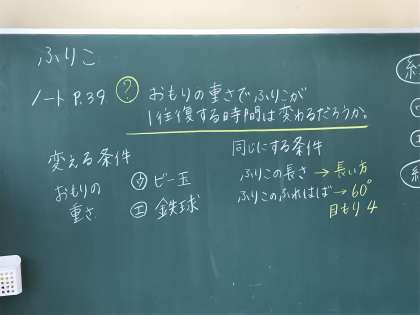 ふりこ
ノート P.39
? おもりの重さでふりこが
1往復する時間は変わるだろうか。
変える条件
おもりの
重さ
ウ ビー玉
エ 鉄球
同じにする条件
ふりこの長さ → 長い方
ふりこのふれはば → 60°
目もり 4